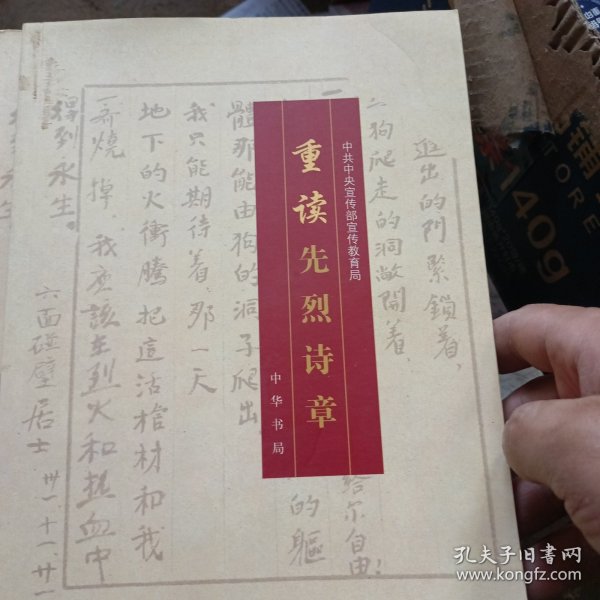 中共中央宣传部宣传教育局
重读先烈诗章
中华书局
为狗爬走的洞敞開着，
給尔自由！
的軀
體那能由狗的洞子爬出
我只能期待着，那一天
地下的火衝騰，把這活棺材和我
一齊燒掉，我應該在烈火和熱血中
得到永生。
六面碰壁居士
卅一、十一、廿一
140g
TORE
孔夫子旧书网
www.kongfz.com